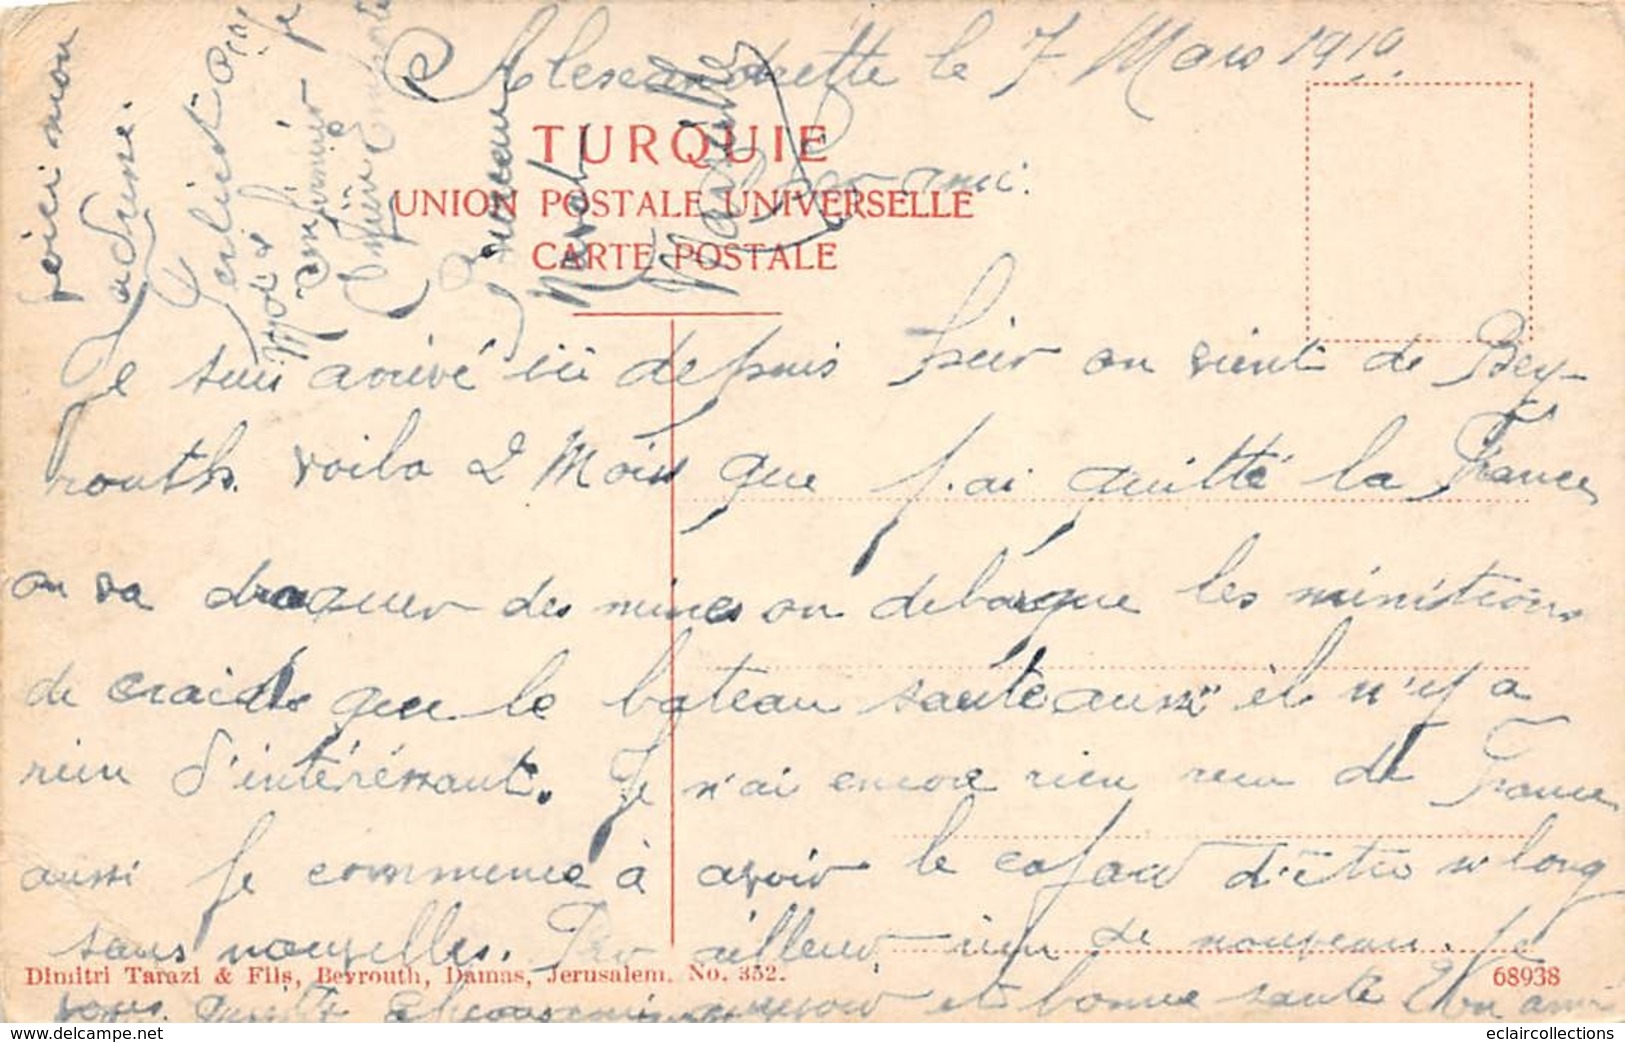 Alexandrette le 7 Mars 1919
TURQUIE
Cher ami.
UNION POSTALE UNIVERSELLE
CARTE POSTALE
Je suis arrivé ici depuis hier on vient de Bey-
routh. voila 2 Mois que j'ai quitté la France
on va draguer des mines on debarque les minitions
de craide que le bateau saute aussi il n'y a
rien d'intéréssant. Je n'ai encore rien recu de France
aussi je commence à avoir le cafard d'être si long
sans nouvelles. Par ailleur rien de nouveau. Je
Dimitri Tarazi & Fils, Beyrouth, Damas, Jerusalem. No. 352. 68938
vous quitte et bonne santé Ton ami
voici mon
adresse.
Infirmier
Bureau
Naval
Marseille
eclaircollections